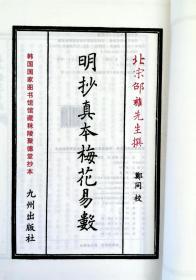 北宋邵雍先生撰
鄭同校
明抄真本梅花易數
韩国国家图书馆馆藏秣陵聚德堂抄本
九州出版社